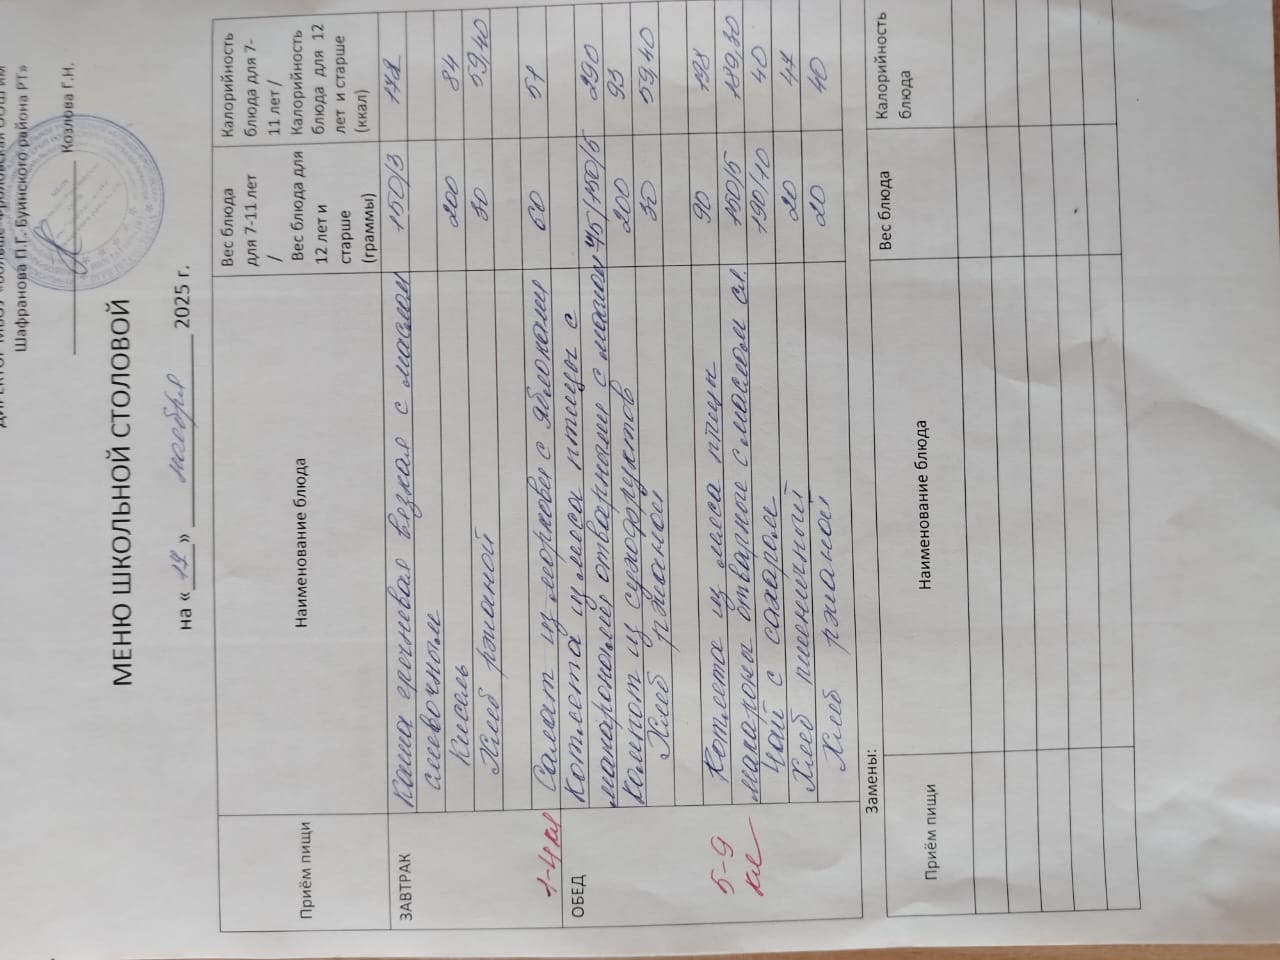 Шафранова П.Г. Буинского района РТ»
Козлова Г.Н.
МЕНЮ ШКОЛЬНОЙ СТОЛОВОЙ
на «17» ноября 2025 г.
Приём пищи
Наименование блюда
Вес блюда для 7-11 лет / Вес блюда для 12 лет и старше (граммы)
Калорийность блюда для 7-11 лет / Калорийность блюда для 12 лет и старше (ккал)
ЗАВТРАК
Каша гречневая вязкая с маслом 150/3 178
сливочным
Кисель 200 84
Хлеб ржаной 30 59,40
1-4 кл
Салат из моркови с яблоками 60 51
ОБЕД
Котлета из мяса птицы с
макаронами отварными с маслом 45/150/5 290
Компот из сухофруктов 200 93
Хлеб ржаной 30 59,40
5-9 кл
Котлета из мяса птицы 90 198
макароны отварные с маслом сл. 150/5 189,30
Чай с сахаром 190/10 40
Хлеб пшеничный 20 47
Хлеб ржаной 20 40
Замены:
Приём пищи
Наименование блюда
Вес блюда
Калорийность блюда